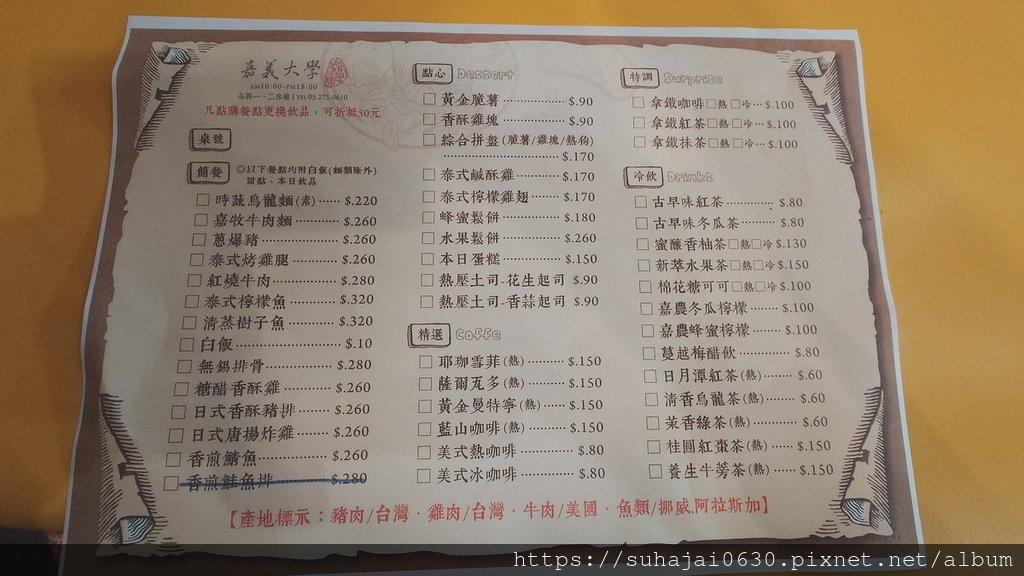 嘉義大學
AM10:00-PM18:00
每周一、二休館 | TEL 05.275-0610
凡點購餐點更換飲品，可折抵50元
桌號
簡餐
◎以下餐點均附白飯(麵類除外)
甜點、本日飲品
□ 時蔬烏龍麵(素)····· $.220
□ 嘉牧牛肉麵········· $.260
□ 蔥爆豬············ $.260
□ 泰式烤雞腿········· $.260
□ 紅燒牛肉··········· $.280
□ 泰式檸檬魚········· $.320
□ 清蒸樹子魚········· $.320
□ 白飯·············· $.10
□ 無錫排骨··········· $.280
□ 糖醋香酥雞········· $.260
□ 日式香酥豬排······· $.260
□ 日式唐揚炸雞······· $.260
□ 香煎鯖魚··········· $.260
□ 香煎鮭魚排········· $.280
點心 Dessert
□ 黃金脆薯············ $.90
□ 香酥雞塊············ $.90
□ 綜合拼盤(脆薯/雞塊/熱狗)
······················ $.170
□ 泰式鹹酥雞·········· $.170
□ 泰式檸檬雞翅········ $.170
□ 蜂蜜鬆餅············ $.180
□ 水果鬆餅············ $.260
□ 本日蛋糕············ $.150
□ 熱壓土司-花生起司 $.90
□ 熱壓土司-香蒜起司 $.90
精選 Coffe
□ 耶珈雪菲(熱)········ $.150
□ 薩爾瓦多(熱)········ $.150
□ 黃金曼特寧(熱)····· $.150
□ 藍山咖啡(熱)········ $.150
□ 美式熱咖啡·········· $.80
□ 美式冰咖啡·········· $.80
特調 Surprise
□ 拿鐵咖啡□熱□冷··· $.100
□ 拿鐵紅茶□熱□冷··· $.100
□ 拿鐵抹茶□熱□冷··· $.100
冷飲 Drinks
□ 古早味紅茶·········· $.80
□ 古早味冬瓜茶········ $.80
□ 蜜釀香柚茶□熱□冷 $.130
□ 新萃水果茶□熱□冷 $.150
□ 棉花糖可可□熱□冷 $.100
□ 嘉農冬瓜檸檬········ $.100
□ 嘉農蜂蜜檸檬········ $.100
□ 蔓越梅醋飲·········· $.80
□ 日月潭紅茶(熱)······ $.60
□ 清香烏龍茶(熱)······ $.60
□ 茉香綠茶(熱)········ $.60
□ 桂圓紅棗茶(熱)······ $.150
□ 養生牛蒡茶(熱)······ $.150
【產地標示：豬肉/台灣．雞肉/台灣．牛肉/美國．魚類/挪威.阿拉斯加】
https://suhajai0630.pixnet.net/album